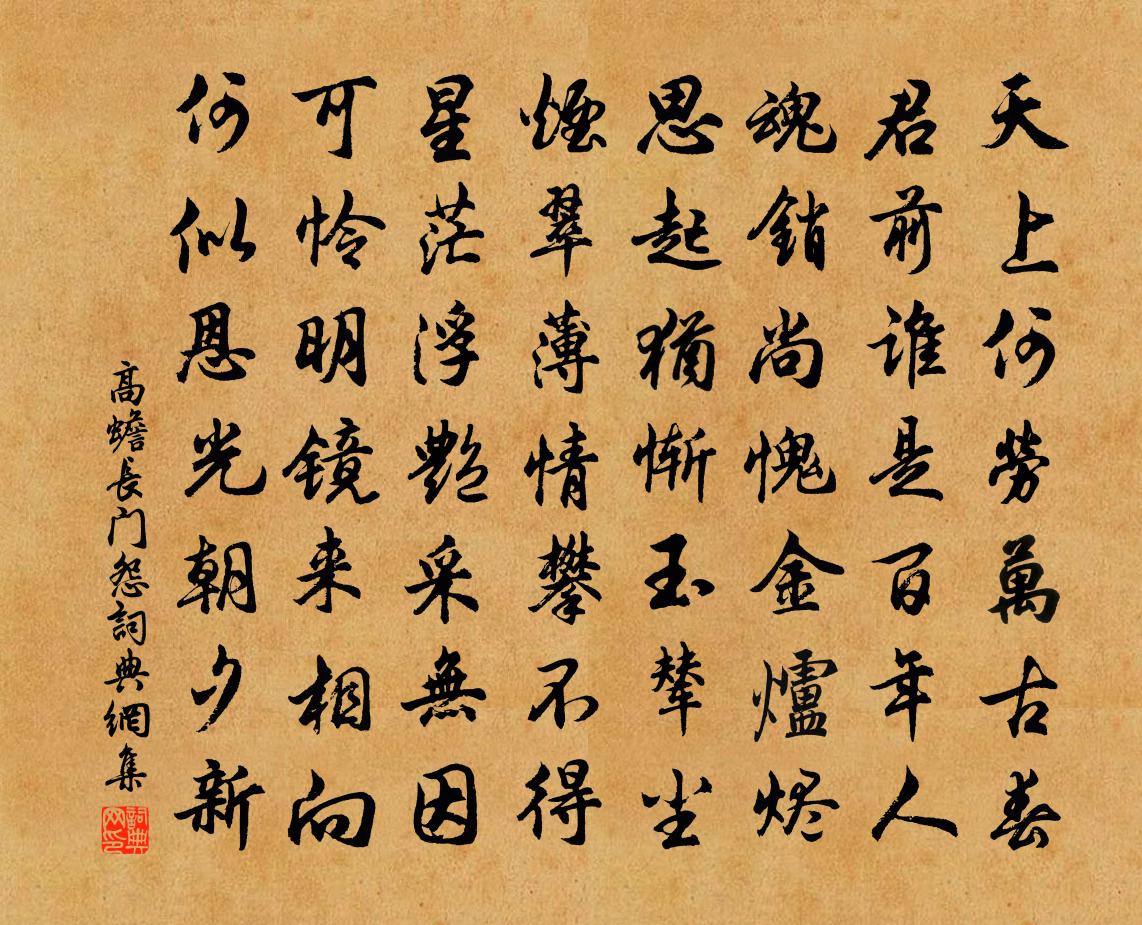 天上何勞萬古春
君前谁是百年人
魂銷尚愧金爐烬
思起猶惭玉輦尘
煙翠薄情攀不得
星茫浮艷采無因
可怜明镜来相向
何似恩光朝夕新
高蟾長门怨詞典網集
詞典网印